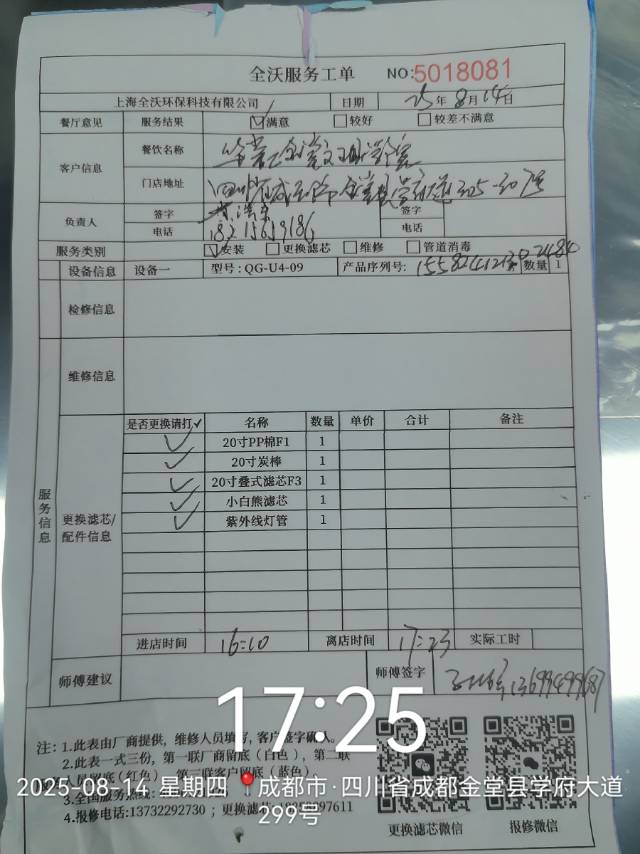 全沃服务工单 NO:5018081
上海全沃环保科技有限公司 日期 25年8月14日
餐厅意见 服务结果 ☑满意 □较好 □较差不满意
客户信息 餐饮名称
门店地址
负责人 签字 签字
电话 电话
服务类别 ☑安装 □更换滤芯 □维修 □管道消毒
设备信息 设备一 型号:QG-U4-09 产品序列号: 数量 1
检修信息
维修信息
服务信息
更换滤芯/配件信息
是否更换请打✓ 名称 数量 单价 合计 备注
✓ 20寸PP棉F1 1
✓ 20寸炭棒 1
✓ 20寸叠式滤芯F3 1
✓ 小白熊滤芯 1
✓ 紫外线灯管 1
进店时间 16:10 离店时间 17:23 实际工时
师傅建议 师傅签字 13699499687
17:25
注: 1.此表由厂商提供，维修人员填写，客户签字确认。
2.此表一式三份，第一联厂商留底（白色），第二联
人员留底（红色），第三联客户留底（蓝色）。
2025-08-14 星期四 成都市·四川省成都金堂县学府大道
299号
3.全国服务热线:
4.报修电话:13732292730；更换滤芯
更换滤芯微信 报修微信